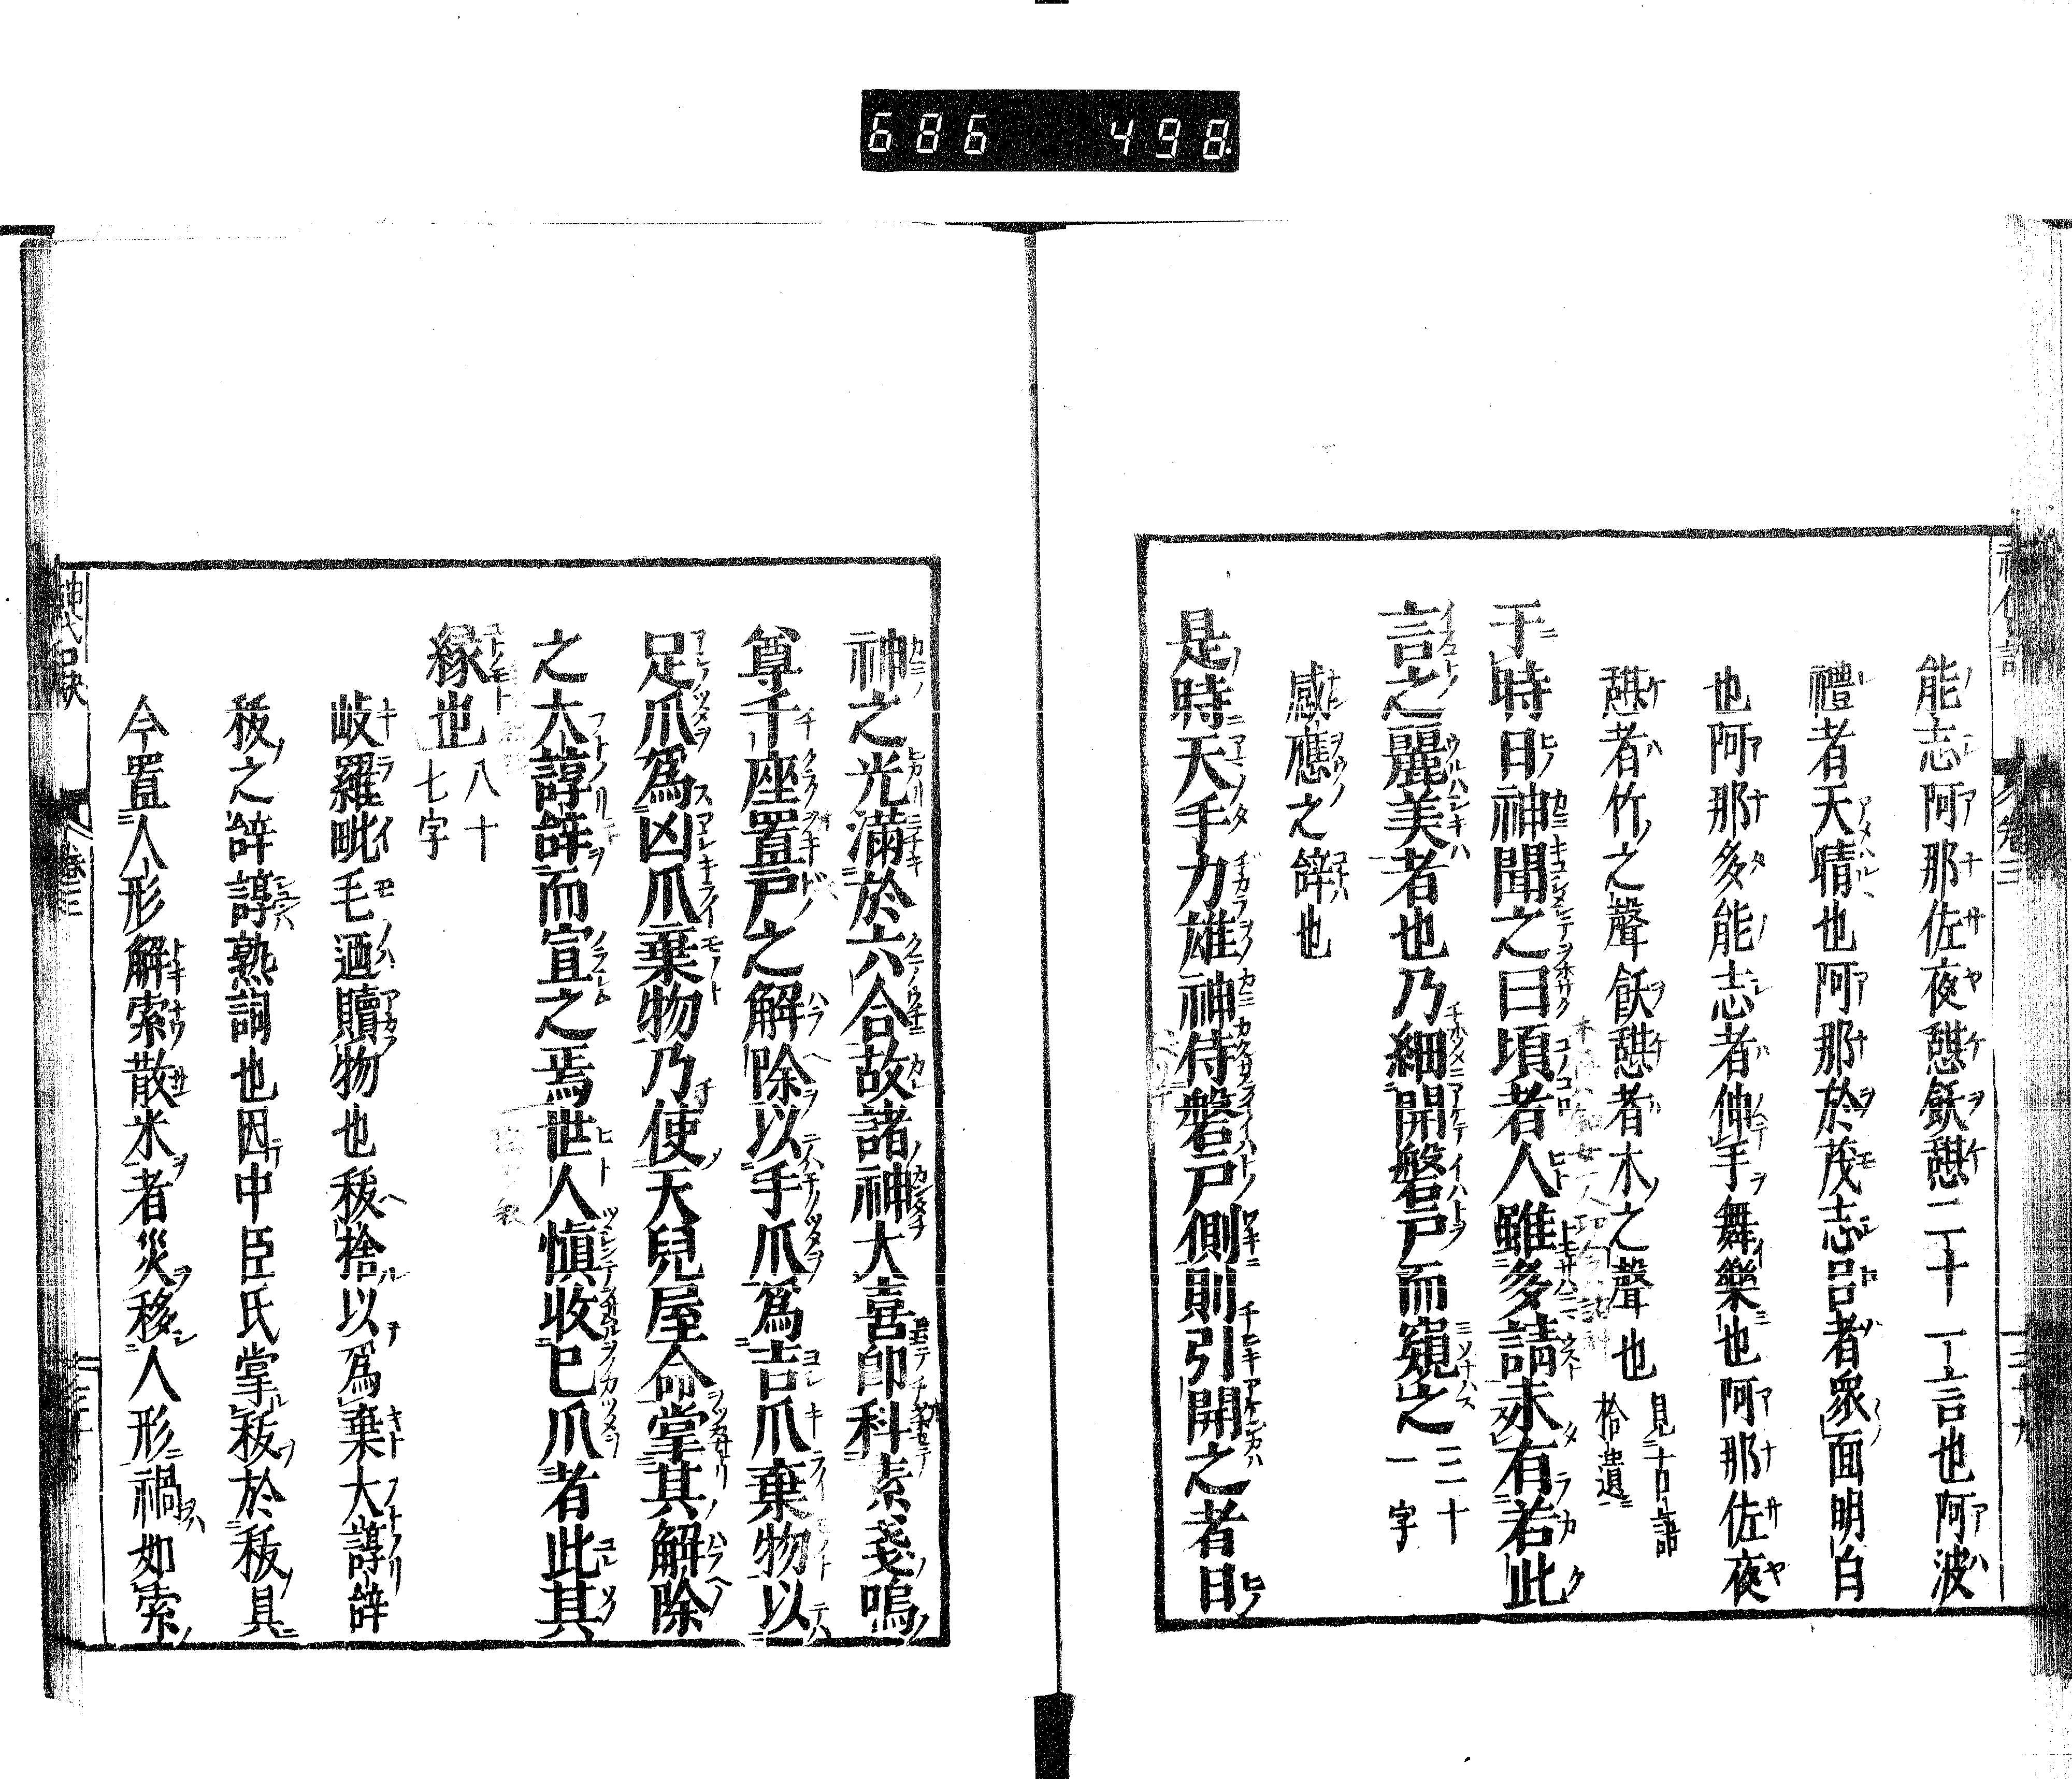 686 498
能志阿那佐夜憩飫憩二十一言也阿波
禮者天晴也阿那於茂志呂者衆面明白
也阿那多能志者伸手舞樂也阿那佐夜
憩者竹之聲飫憩者木之聲也見古語拾遺
于時日神聞之曰頃者人雖多請未有若此
言之麗美者也乃細開磐戸而窺之三十一字
感應之辭也
是時天手力雄神侍磐戸側則引開之者日
神之光滿於六合故諸神大喜即科素戔嗚
尊千座置戸之解除以手爪爲吉爪棄物以
足爪爲凶爪棄物乃使天兒屋命掌其解除
之大諄辭而宣之焉世人愼收已爪者此其
緣也八十七字
岐羅毗毛廼贖物也秡捨以爲棄大諄辭
秡之辭諄熟詞也因中臣氏掌秡於秡具
今置人形解索散米者災移人形禍如索
卷三